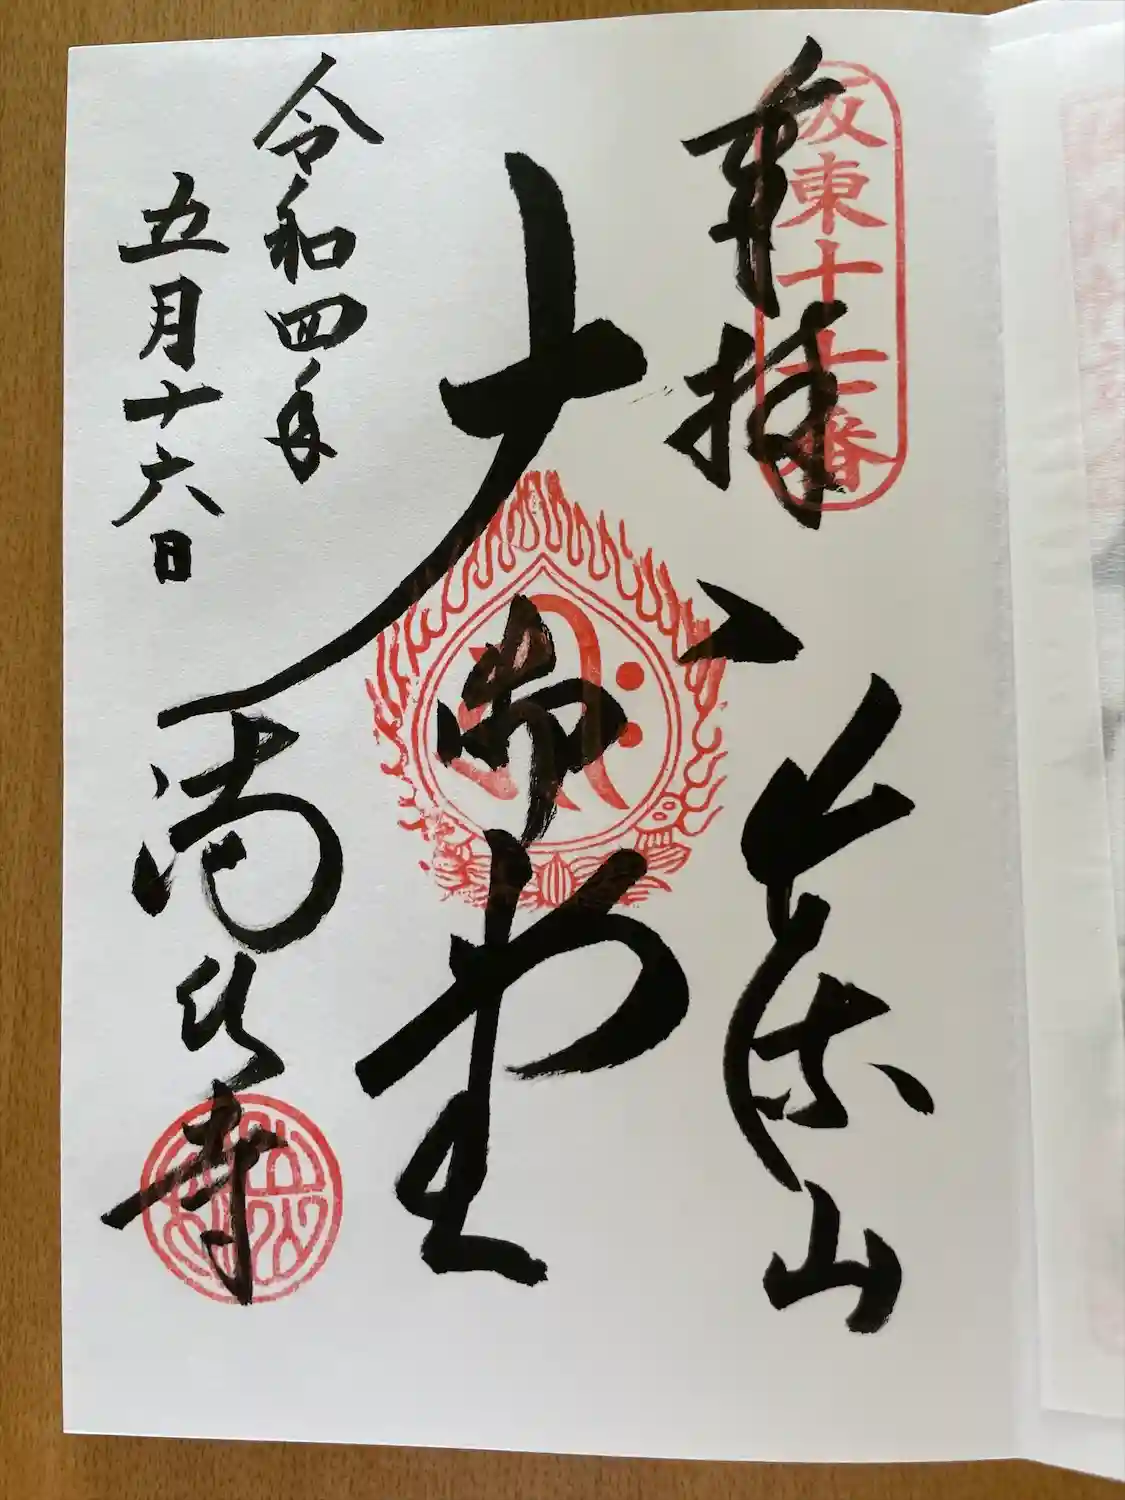 坂東十七番
奉拝
出流山
大御堂
令和四年
五月十六日
満願寺